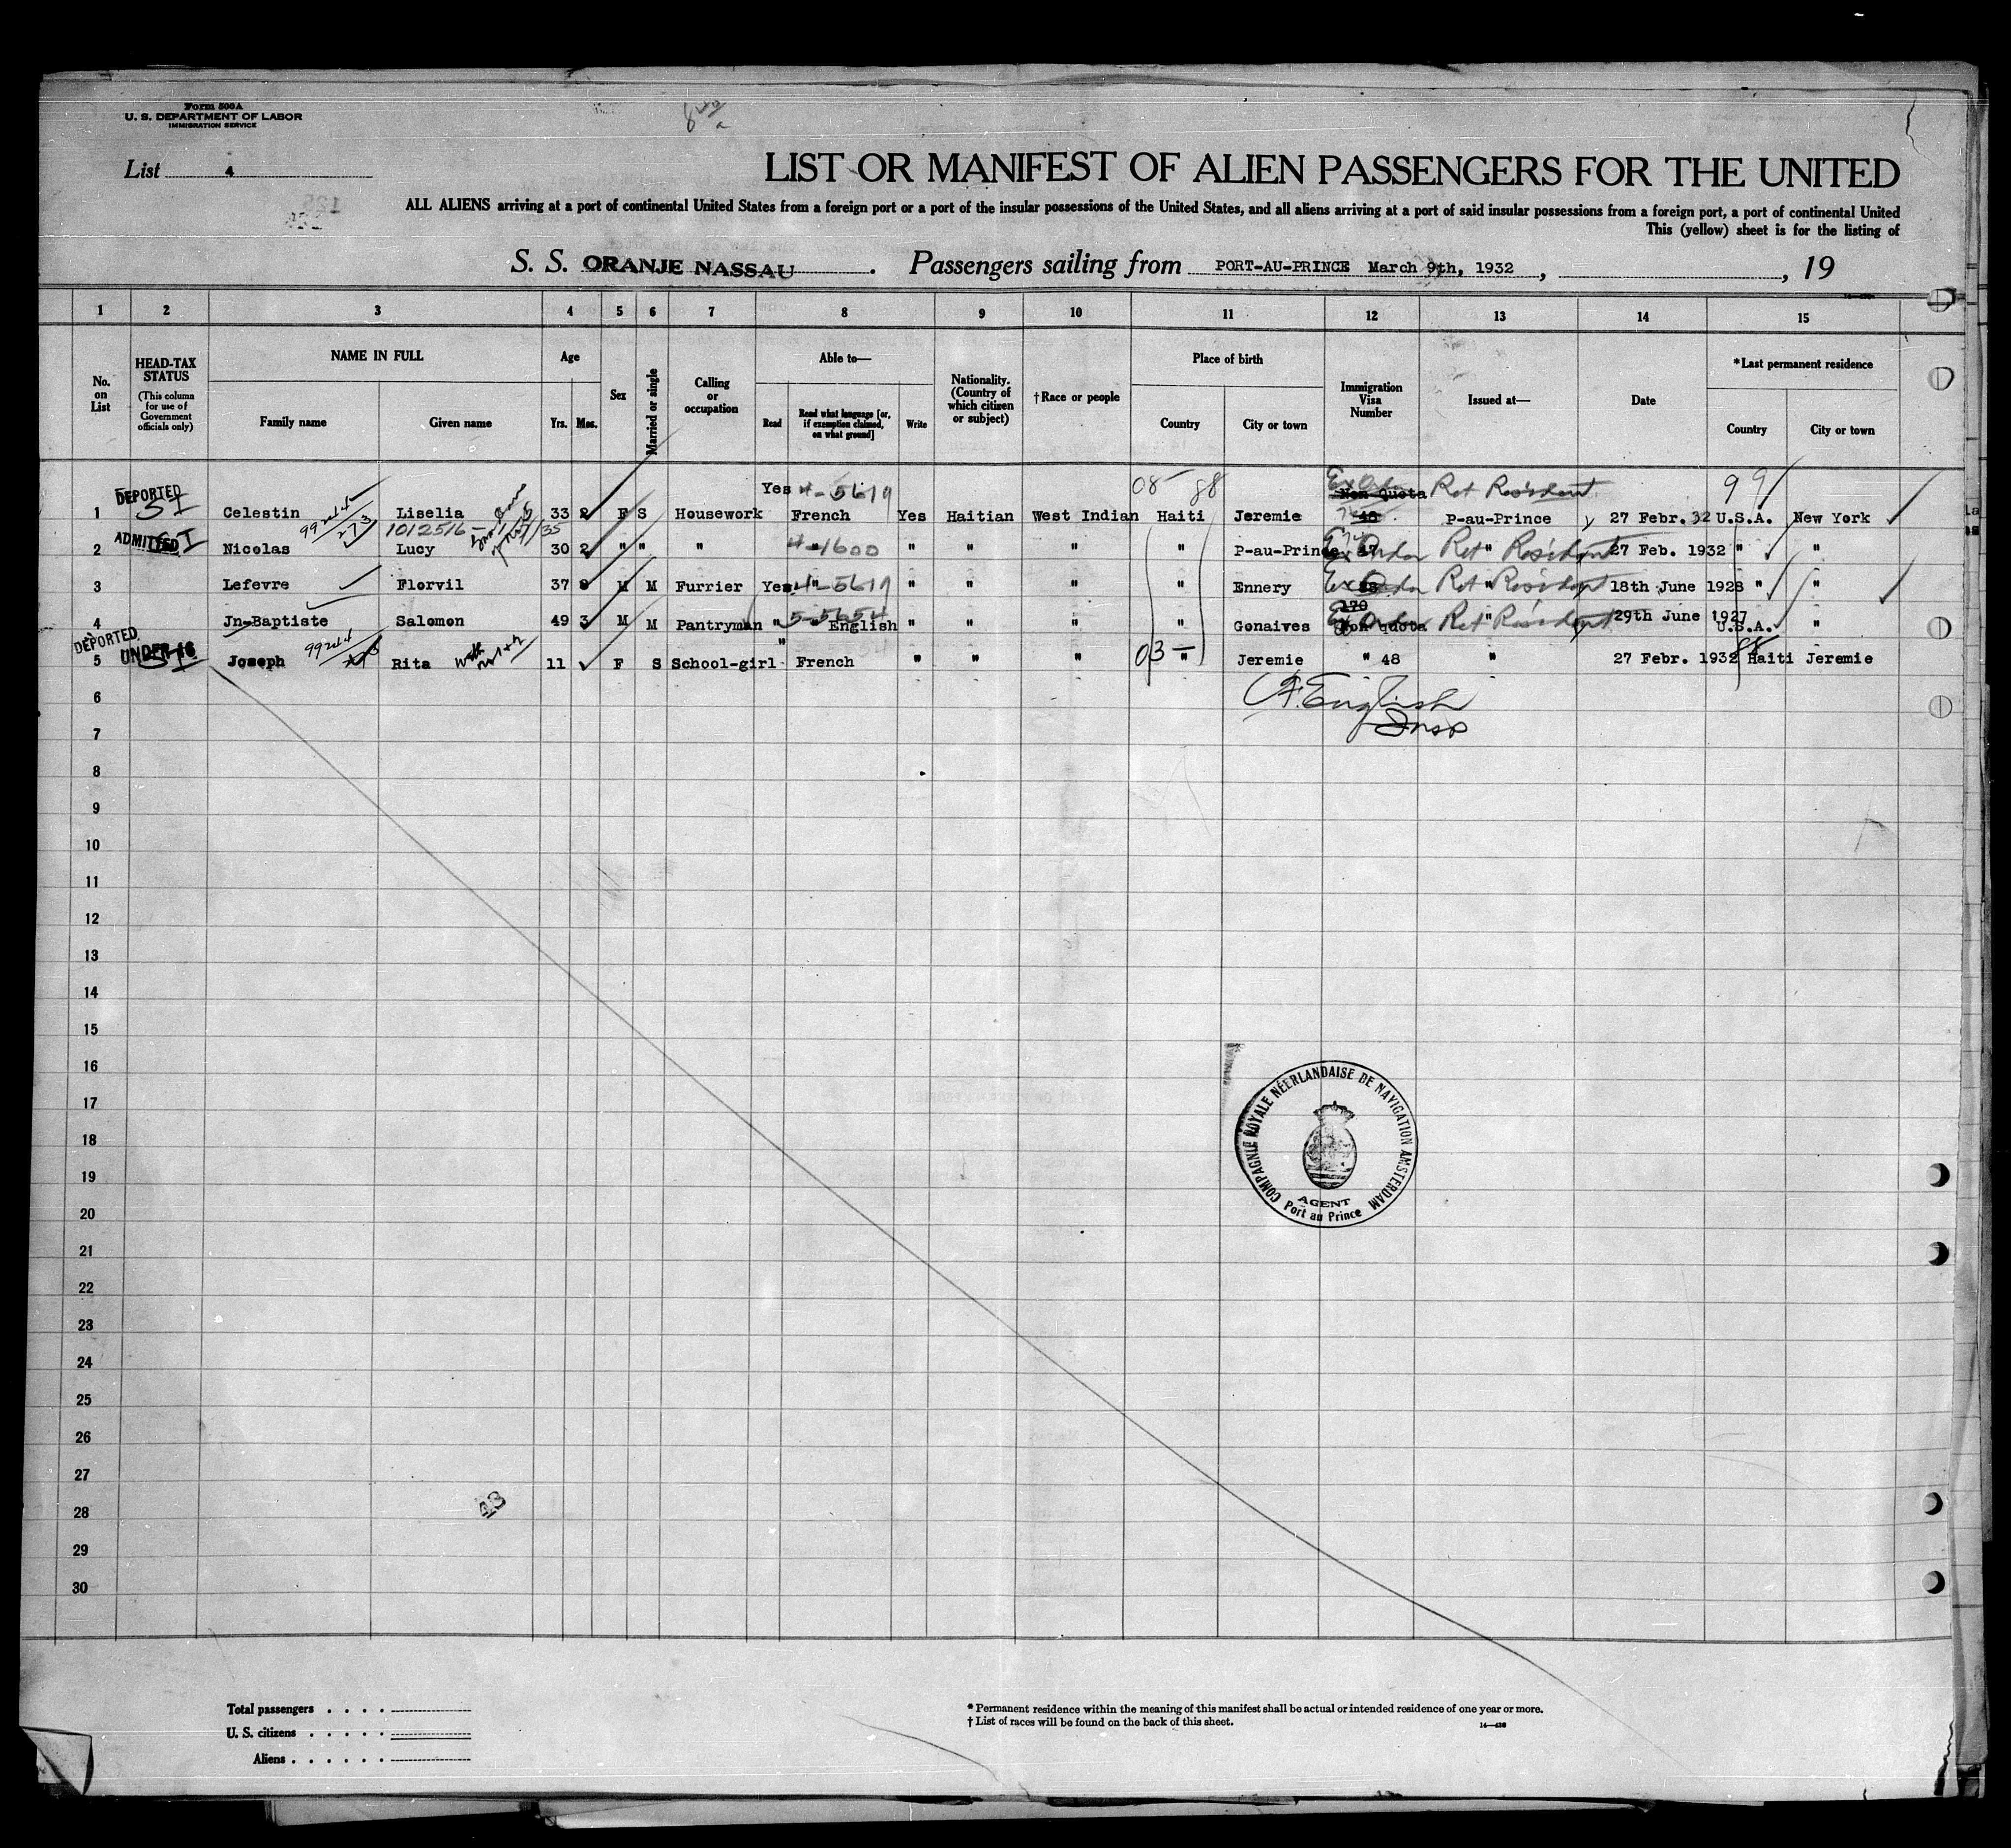 Form 500A
U. S. DEPARTMENT OF LABOR
IMMIGRATION SERVICE
List 4
LIST OR MANIFEST OF ALIEN PASSENGERS FOR THE UNITED
ALL ALIENS arriving at a port of continental United States from a foreign port or a port of the insular possessions of the United States, and all aliens arriving at a port of said insular possessions from a foreign port, a port of continental United
This (yellow) sheet is for the listing of
S. S. ORANJE NASSAU . Passengers sailing from PORT-AU-PRINCE March 9th, 1932 , , 19
1 2 3 4 5 6 7 8 9 10 11 12 13 14 15
No. on List
HEAD-TAX STATUS
(This column for use of Government officials only)
NAME IN FULL
Family name Given name
Age
Yrs. Mos.
Sex
Married or single
Calling or occupation
Able to—
Read
Read what language [or, if exemption claimed, on what ground]
Write
Nationality. (Country of which citizen or subject)
†Race or people
Place of birth
Country City or town
Immigration Visa Number
Issued at—
Date
*Last permanent residence
Country City or town
DEPORTED Yes 4-5619 08 88 Ex Order Non Quota Ret Resident 99
1 SI Celestin Liselia 33 2 F S Housework French Yes Haitian West Indian Haiti Jeremie 48 P-au-Prince 27 Febr. 32 U.S.A. New York
99244/273 1012516
ADMITTED
2 SI Nicolas Lucy 30 2 " " " 4-1600 " " " " P-au-Prince Ex Order 47 Ret " Resident 27 Feb. 1932 " "
3 Lefevre Florvil 37 8 M M Furrier Yes " 4-5619 " " " " Ennery Ex Order Ret " Resident 18th June 1928 " "
4 Jn-Baptiste Salomon 49 3 M M Pantryman " " English 5-5654 " " " " Gonaives 170 Ex Order Non quota Ret " Resident 29th June 1927 U.S.A. "
DEPORTED UNDER 16
5 SI Joseph 99244 Rita with 11 F S School-girl " French " " " 03 - " Jeremie " 48 " 27 Febr. 1932 88 Haiti Jeremie
6
F. English
Insp
7
8
9
10
11
12
13
14
15
16
17
18
19
20
21
22
23
24
25
26
27
28
29
30
COMPAGNIE ROYALE NÉERLANDAISE DE NAVIGATION AMSTERDAM
AGENT
Port au Prince
43
Total passengers . . . .
U. S. citizens . . . . .
Aliens . . . . . .
* Permanent residence within the meaning of this manifest shall be actual or intended residence of one year or more.
† List of races will be found on the back of this sheet.